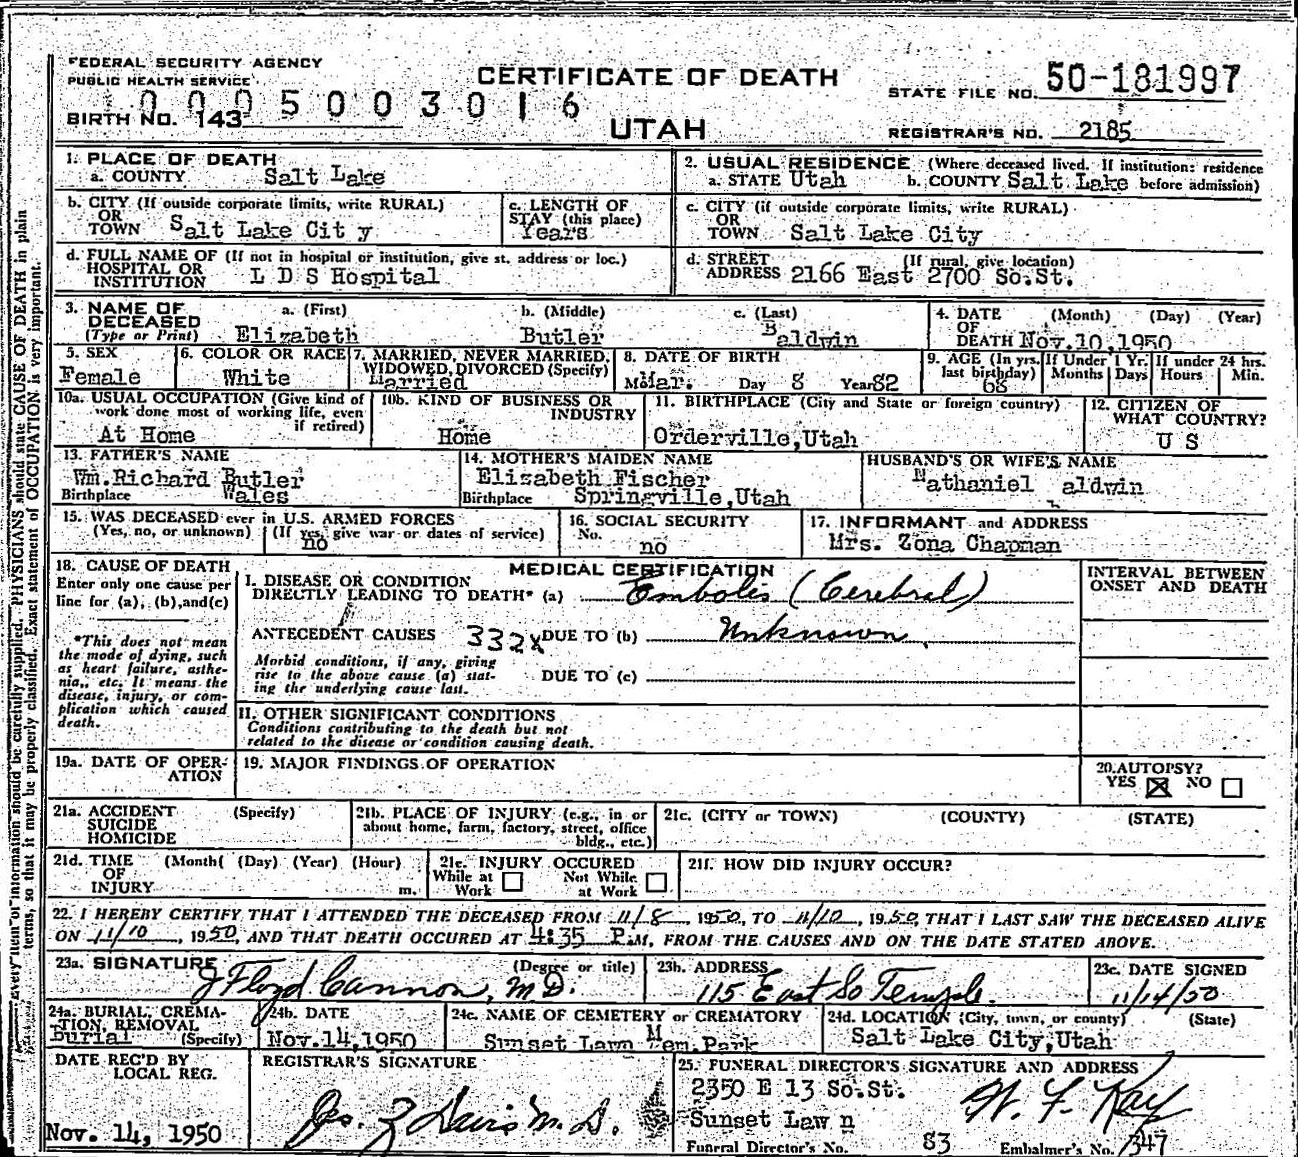 FEDERAL SECURITY AGENCY
PUBLIC HEALTH SERVICE
CERTIFICATE OF DEATH
STATE FILE NO. 50-181997
0005003016
BIRTH NO. 143
UTAH
REGISTRAR'S NO. 2185
1. PLACE OF DEATH
a. COUNTY Salt Lake
2. USUAL RESIDENCE (Where deceased lived. If institution: residence
a. STATE Utah b. COUNTY Salt Lake before admission)
b. CITY (If outside corporate limits, write RURAL)
OR
TOWN Salt Lake Cit y
c. LENGTH OF
STAY (this place)
Years
c. CITY (if outside corporate limits, write RURAL)
OR
TOWN Salt Lake City
d. FULL NAME OF (If not in hospital or institution, give st. address or loc.)
HOSPITAL OR
INSTITUTION L D S Hospital
d. STREET (If rural, give location)
ADDRESS 2166 East 2700 So.St.
3. NAME OF a. (First) b. (Middle) c. (Last)
DECEASED
(Type or Print) Elizabeth Butler Baldwin
4. DATE (Month) (Day) (Year)
OF
DEATH Nov.10,1950
5. SEX
Female
6. COLOR OR RACE
White
7. MARRIED, NEVER MARRIED,
WIDOWED, DIVORCED (Specify)
Married
8. DATE OF BIRTH
Mo Mar. Day 8 Year 82
9. AGE (In yrs. last birthday)
68
If Under 1 Yr.
Months Days
If under 24 hrs.
Hours Min.
10a. USUAL OCCUPATION (Give kind of
work done most of working life, even
if retired)
At Home
10b. KIND OF BUSINESS OR
INDUSTRY
Home
11. BIRTHPLACE (City and State or foreign country)
Orderville,Utah
12. CITIZEN OF
WHAT COUNTRY?
U S
13. FATHER'S NAME
Wm.Richard Butler
Birthplace Wales
14. MOTHER'S MAIDEN NAME
Elizabeth Fischer
Birthplace Springville,Utah
HUSBAND'S OR WIFE'S NAME
Nathaniel aldwin
15. WAS DECEASED ever in U.S. ARMED FORCES
(Yes, no, or unknown) (If yes, give war or dates of service)
no
16. SOCIAL SECURITY
No.
no
17. INFORMANT and ADDRESS
Mrs. Zona Chapman
18. CAUSE OF DEATH
Enter only one cause per
line for (a), (b), and (c)
*This does not mean
the mode of dying, such
as heart failure, asthe-
nia,, etc. It means the
disease, injury, or com-
plication which caused
death.
MEDICAL CERTIFICATION
I. DISEASE OR CONDITION
DIRECTLY LEADING TO DEATH* (a) Embolis (Cerebral)
ANTECEDENT CAUSES 332x DUE TO (b) Unknown
Morbid conditions, if any, giving
rise to the above cause (a) stat-
ing the underlying cause last.
DUE TO (c)
INTERVAL BETWEEN
ONSET AND DEATH
II. OTHER SIGNIFICANT CONDITIONS
Conditions contributing to the death but not
related to the disease or condition causing death.
19a. DATE OF OPER-
ATION
19. MAJOR FINDINGS OF OPERATION
20. AUTOPSY?
YES NO
21a. ACCIDENT (Specify)
SUICIDE
HOMICIDE
21b. PLACE OF INJURY (e.g., in or
about home, farm, factory, street, office
bldg., etc.)
21c. (CITY or TOWN) (COUNTY) (STATE)
21d. TIME (Month( (Day) (Year) (Hour)
OF
INJURY m.
21e. INJURY OCCURED
While at Not While
Work at Work
21f. HOW DID INJURY OCCUR?
22. I HEREBY CERTIFY THAT I ATTENDED THE DECEASED FROM 11/8, 1950, TO 11/10, 1950, THAT I LAST SAW THE DECEASED ALIVE
ON 11/10, 1950, AND THAT DEATH OCCURED AT 4:35 P.M, FROM THE CAUSES AND ON THE DATE STATED ABOVE.
23a. SIGNATURE (Degree or title)
J Floyd Cannon, M.D.
23b. ADDRESS
115 East So Temple
23c. DATE SIGNED
11/14/50
24a. BURIAL, CREMA-
TION, REMOVAL
Burial (Specify)
24b. DATE
Nov.14,1950
24c. NAME OF CEMETERY or CREMATORY
Sunset Lawn Mem.Park
24d. LOCATION (City, town, or county) (State)
Salt Lake City,Utah
DATE REC'D BY
LOCAL REG.
Nov. 14, 1950
REGISTRAR'S SIGNATURE
Jos. Z Davis M.D.
25. FUNERAL DIRECTOR'S SIGNATURE AND ADDRESS
2350 E 13 So.St.
W. F. Kay
Sunset Law n
Funeral Director's No. 83 Embalmer's No. 347
Every item of information should be carefully supplied. PHYSICIANS should state CAUSE OF DEATH in plain
terms, so that it may be properly classified. Exact statement of OCCUPATION is very important.